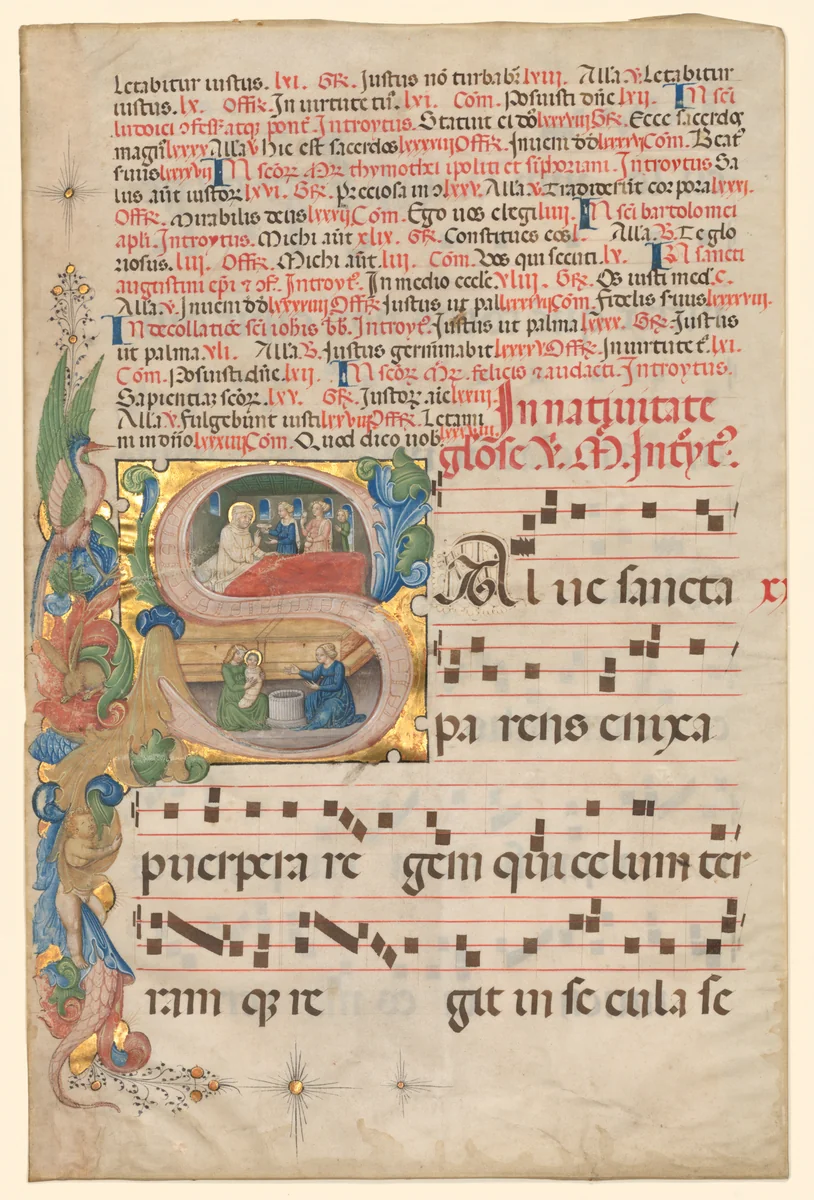 Letabitur iustus. lxi. GR. Justus nō turbabr̄ lviii. Alla. v. Letabitur
iustus. lx. Offr. In uirtute tu. lvi. Com. Posuisti dn̄e lvii. In sc̄i
ludoici ɔfess. atqȝ pont. Introytus. Statuit ei dō lxxxviii GR. Ecce sacerdos
magn' lxxxx Alla v hic est sacerdos lxxxviii Offr. Inueni dd lxxxvi Com. Beat'
seruus lxxxvii In scōr. Mr thymothei ipoliti et simphoriani. Introytus Sa
lus aūt iustor. lxvi. GR. Preciosa in ɔ lxxv. Alla. v. Tradiderūt corpora lxxxi.
Offr. Mirabilis deus lxxxii Com. Ego uos elegi liiii. In sc̄i bartolomei
apli. Introytus. Michi aūt xlix. GR. Constitues eos l. Alla. v. Te glo
riosus. liii. Offr. Michi aūt. liii. Com. Vos qui secuti. lv. In sancti
augustini ep̄i & ɔf. Introyt'. In medio eccle. xliii. GR. Os iusti med. c.
Alla. v. Inueni dd lxxxviiii Offr. Justus ut pal lxxxvii Com. Fidelis seruus lxxxxviii.
In decollatiōe sc̄i iohīs bb. Introyt'. Justus ut palma lxxxx. GR. Justus
ut palma. xli. Alla. v. Justus germinabit lxxxxv Offr. In uirtute t'. lxi.
Com. Posuisti dn̄e. lxii. In scōr. Mr. felicis & audacti. Introytus.
Sapientia scōr. lxx. GR. Justor. aīe lxxiii.
Alla. v. Fulgebunt iusti lxxvii Offr. Letami
ni in dn̄o lxxxiii Com. Quod dico uob. lxxxiiii.
In natiuitate
gl'ose v. M. Introyt'.
SAl ue sancta xx
pa rens enixa
puerpera re gem qui celum ter
ram qȝ re git in se cula se